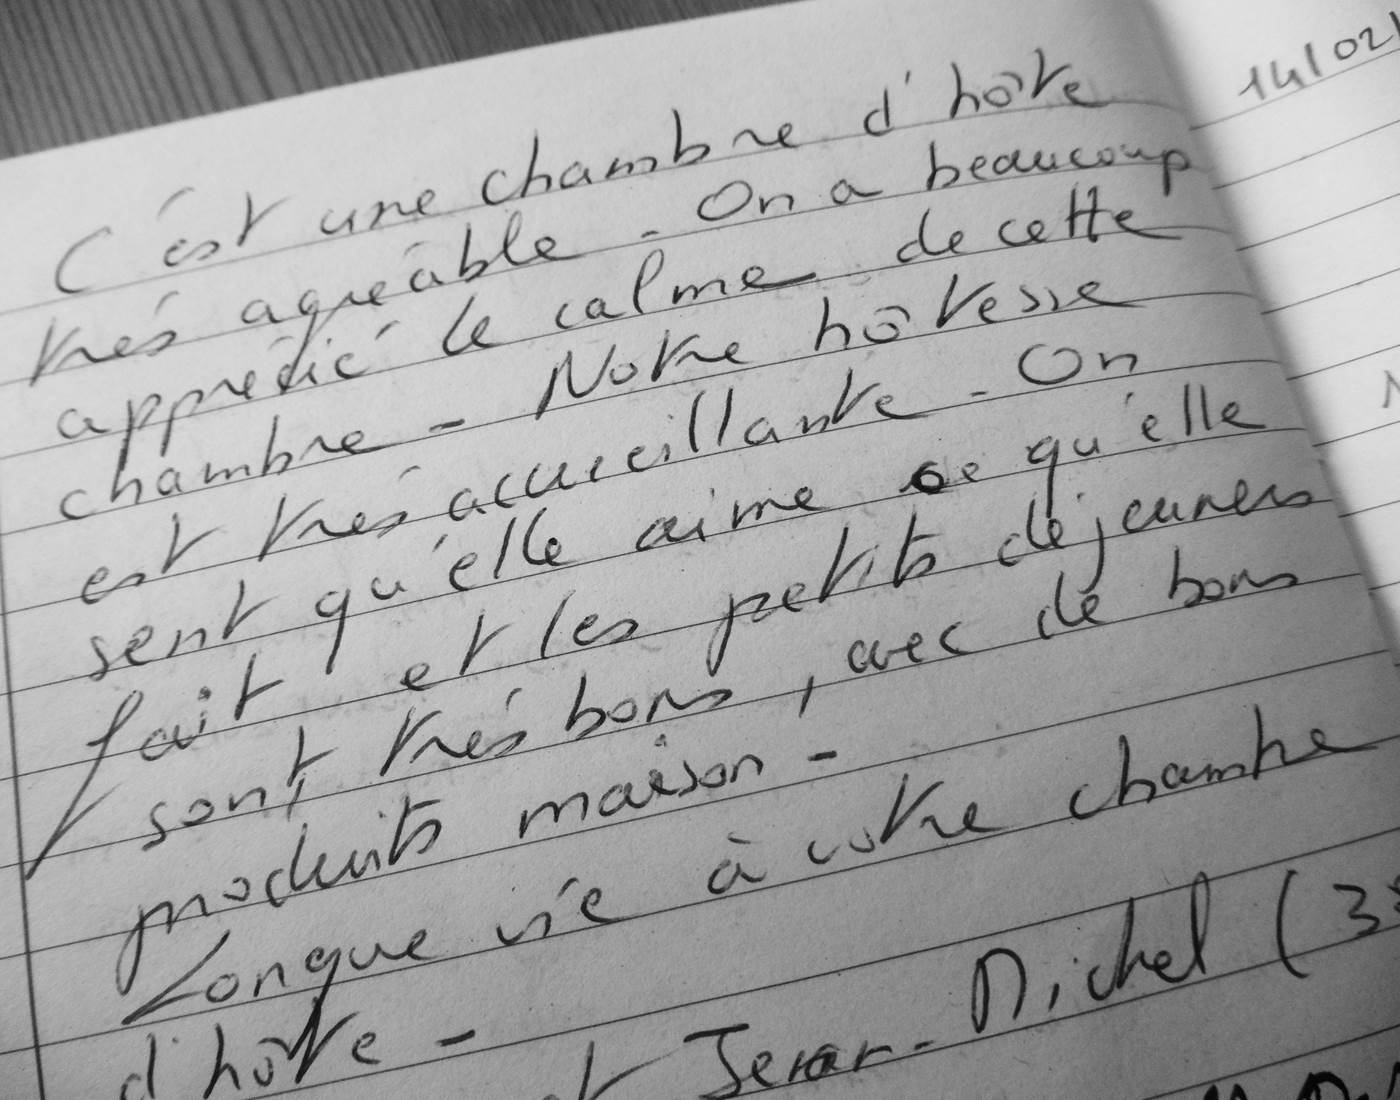 C'est une chambre d'hôte
très agréable - On a beaucoup
apprécié le calme de cette
chambre - Notre hôtesse
est très accueillante - On
sent qu'elle aime ce qu'elle
fait et les petits déjeuners
sont très bons, avec de bons
produits maison -
Longue vie à votre chambre
d'hôte -
Jean-Michel (3
14/02/